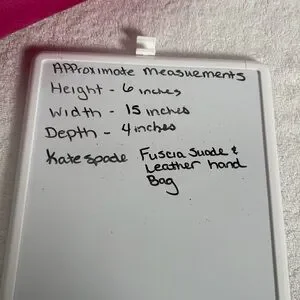 Approximate measuements
Height - 6 inches
Width - 15 inches
Depth - 4 inches
Kate Spade Fuscia Suade &
Leather hand
Bag